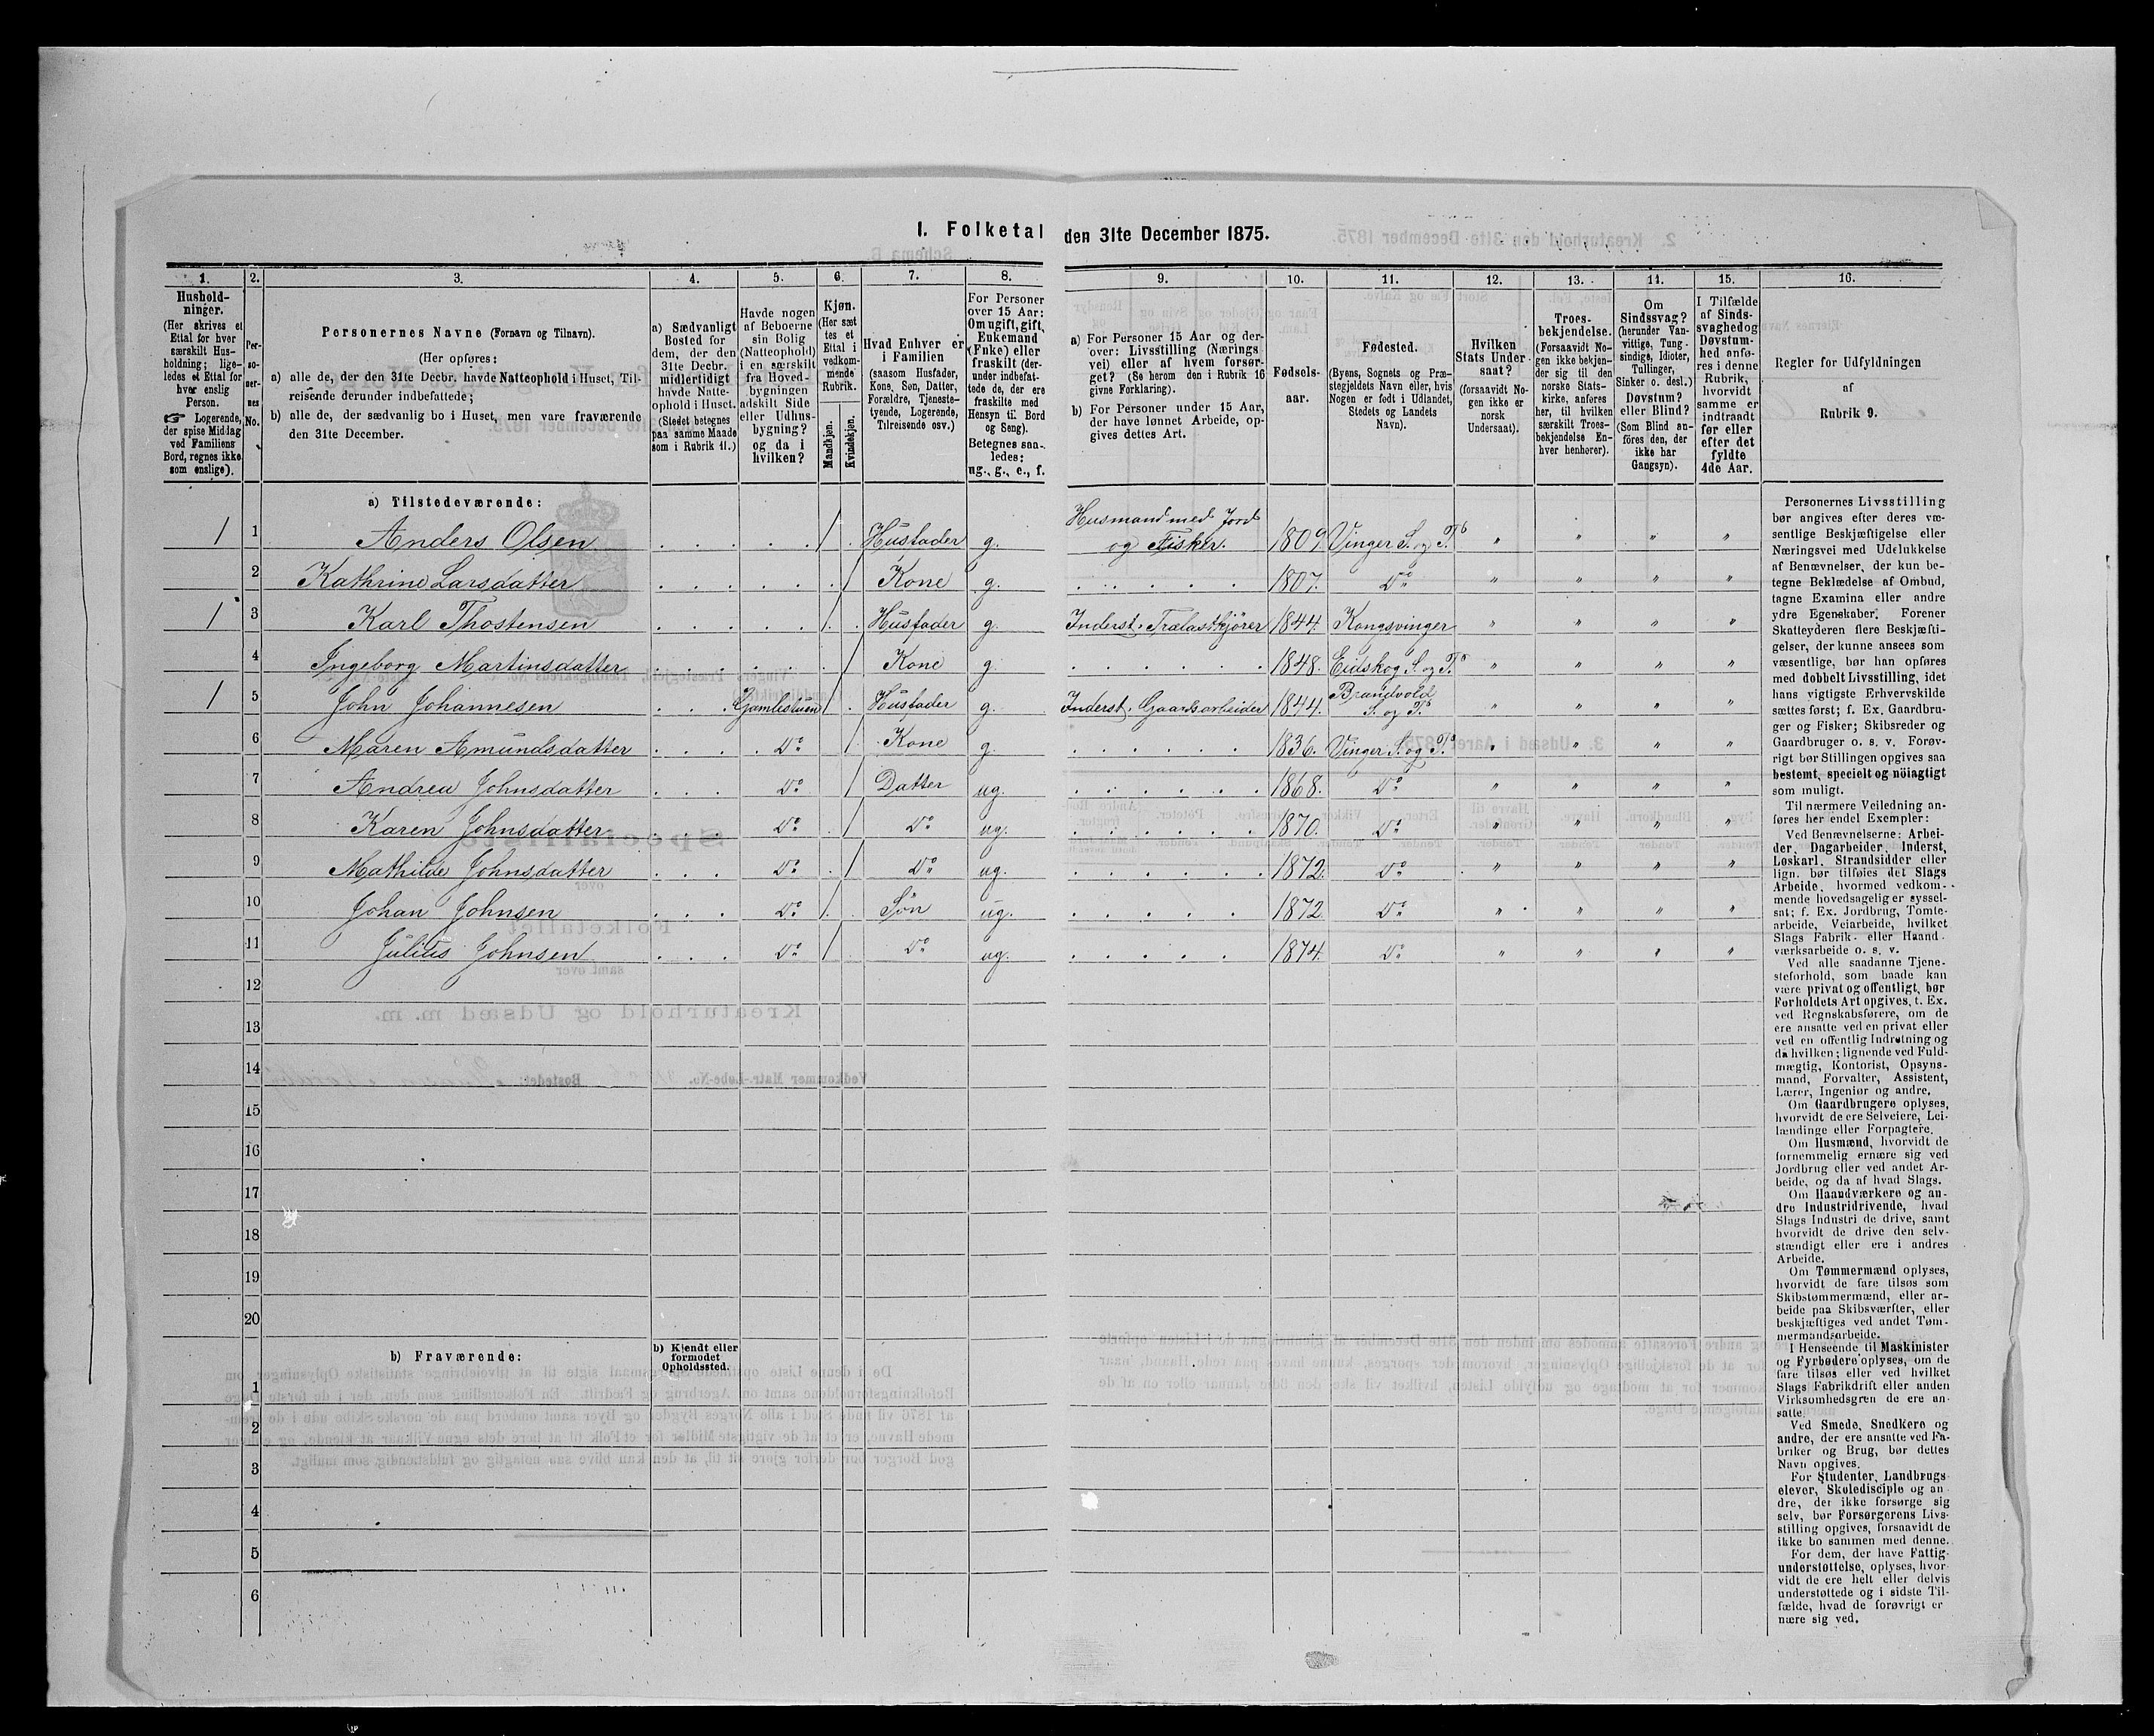 I. Folketal den 31te December 1875.
1. 2. 3. 4. 5. 6. 7. 8. 9. 10. 11. 12. 13. 14. 15. 16.
Hushold-
ninger.
(Her skrives et
Ettal for hver
særskilt Hus-
holdning; lige-
ledes et Ettal for
hver enslig
Person.
☞ Logerende,
der spise Middag
ved Familiens
Bord, regnes ikke
som enslige).
Per-
so-
ner-
nes
No.
Personernes Navne (Fornavn og Tilnavn).
(Her opføres:
a) alle de, der den 31te Decbr. havde Natteophold i Huset, Til-
reisende derunder indbefattede;
b) alle de, der sædvanlig bo i Huset, men vare fraværende
den 31te December.
a) Sædvanligt
Bosted for
dem, der den
31te Decbr.
midlertidigt
havde Natte-
ophold i Huset.
(Stedet betegnes
paa samme Maade
som i Rubrik 11.)
Havde nogen
af Beboerne
sin Bolig
(Natteophold)
i en særskilt
fra Hoved-
bygningen
adskilt Side
eller Udhus-
bygning?
og da i
hvilken?
Kjøn.
(Her sæt
tes et
Ettal i
vedkom-
mende
Rubrik.
Mandkjøn.
Kvindekjøn.
Hvad Enhver er
i Familien
(saasom Husfader,
Kone, Søn, Datter,
Forældre, Tjeneste-
tyende, Logerende,
Tilreisende osv.)
For Personer
over 15 Aar:
Om ugift, gift,
Enkemand
(Enke) eller
fraskilt (der-
under indbefat-
tede de, der ere
fraskilte med
Hensyn til Bord
og Seng).
Betegnes saa-
ledes:
ug., g., e., f.
a) For Personer 15 Aar og der-
over: Livsstilling (Nærings
vei) eller af hvem forsør-
get? (Se herom den i Rubrik 16
givne Forklaring).
b) For Personer under 15 Aar,
der have lønnet Arbeide, op-
gives dettes Art.
Fødsels-
aar.
Fødested.
(Byens, Sognets og Præ-
stegjeldets Navn eller, hvis
Nogen er født i Udlandet,
Stedets og Landets
Navn).
Hvilken
Stats Under-
saat?
(forsaavidt No-
gen ikke er
norsk
Undersaat).
Troes-
bekjendelse.
(Forsaavidt No-
gen ikke bekjen-
der sig til den
norske Stats-
kirke, anføres
her, til hvilken
særskilt Troes-
bekjendelse En-
hver henhører).
Om
Sindssvag?
(herunder Van-
vittige, Tung-
sindige, Idioter,
Tullinger,
Sinker o. desl.)
Døvstum?
eller Blind?
(Som Blind an-
føres den, der
ikke har
Gangsyn).
I Tilfælde
af Sinds-
svaghed og
Døvstum-
hed anfø-
res i denne
Rubrik,
hvorvidt
samme er
indtraadt
før eller
efter det
fyldte
4de Aar.
Regler for Udfyldningen
af
Rubrik 9.
a) Tilstedeværende:
1 1 Anders Olsen 1 Husfader g. Husmand med Jord og Fisker. 1809. Vinger S. og Pd " " " "
2 Kathrine Larsdatter 1 Kone g. 1807. Do " " " "
1 3 Karl Thostensen 1 Husfader g. Inderst. Trælastkjører 1844. Kongsvinger " " " "
4 Ingeborg Martinsdatter 1 Kone g. 1848. Eidskog S. og Pd " " " "
1 5 John Johannesen Gamlestuen 1 Husfader g. Inderst. Gaardsarbeider 1844. Brandvold S. og Pd " " " "
6 Maren Amundsdatter Do 1 Kone g. 1836. Vinger S. og Pd " " " "
7 Andrea Johnsdatter Do 1 Datter ug. 1868. Do " " " "
8 Karen Johnsdatter Do 1 Do ug. 1870. Do " " " "
9 Mathilde Johnsdatter Do 1 Do ug. 1872. Do " " " "
10 Johan Johnsen Do 1 Søn ug. 1872 Do " " " "
11 Julius Johnsen Do 1 Do ug. 1874. Do " " " "
12
13
14
15
16
17
18
19
20
b) Fraværende:
b) Kjendt eller
formodet
Opholdssted.
1
2
3
4
5
6
Personernes Livsstilling
bør angives efter deres væ-
sentlige Beskjæftigelse eller
Næringsvei med Udelukkelse
af Benævnelser, der kun be-
tegne Beklædelse af Ombud,
tagne Examina eller andre
ydre Egenskaber. Forener
Skatteyderen flere Beskjæfti-
gelser, der kunne ansees som
væsentlige, bør han opføres
med dobbelt Livsstilling, idet
hans vigtigste Erhvervskilde
sættes først; f. Ex. Gaardbru-
ger og Fisker; Skibsreder og
Gaardbruger o. s. v. Forøv-
rigt bør Stillingen opgives saa
bestemt, specielt og nöiagtigt
som muligt.
Til nærmere Veiledning an-
føres her endel Exempler:
Ved Benævnelserne: Arbei-
der, Dagarbeider, Inderst,
Løskarl, Strandsidder eller
lign. bør tilføies det Slags
Arbeide, hvormed vedkom-
mende hovedsagelig er syssel-
sat; f. Ex. Jordbrug, Tomte-
arbeide, Veiarbeide, hvilket
Slags Fabrik- eller Haand-
værksarbeide o. s. v.
Ved alle saadanne Tjene-
steforhold, som baade kan
være privat og offentligt, bør
Forholdets Art opgives, t. Ex.
ved Regnskabsførere, om de
ere ansatte ved en privat eller
ved en offentlig Indretning og
da hvilken; lignende ved Fuld-
mægtig, Kontorist, Opsyns-
mand, Forvalter, Assistent,
Lærer, Ingeniør og andre.
Om Gaardbrugere oplyses,
hvorvidt de ere Selveiere, Lei-
lændinge eller Forpagtere.
Om Husmænd, hvorvidt de
fornemmelig ernære sig ved
Jordbrug eller ved andet Ar-
beide, og da af hvad Slags.
Om Haandværkere og an-
dre Industridrivende, hvad
Slags Industri de drive, samt
hvorvidt de drive den selv-
stændigt eller ere i andres
Arbeide.
Om Tømmermænd oplyses,
hvorvidt de fare tilsøs som
Skibstømmermænd, eller ar-
beide paa Skibsværfter, eller
beskjæftiges ved andet Tøm-
mermandsarbeide.
I Henseende til Maskinister
og Fyrbødere oplyses, om de
fare tilsøs eller ved hvilket
Slags Fabrikdrift eller anden
Virksomhedsgren de ere an-
satte.
Ved Smede, Snedkere og
andre, der ere ansatte ved Fa-
briker og Brug, bør dettes
Navn opgives.
For Studenter, Landbrugs
elever, Skoledisciple og an-
dre, der ikke forsørge sig
selv, bør Forsørgerens Livs-
stilling opgives, forsaavidt de
ikke bo sammen med denne.
For dem, der have Fattig-
understøttelse, oplyses, hvor-
vidt de ere helt eller delvis
understøttede og i sidste Til-
fælde, hvad de forøvrigt er
nære sig ved.